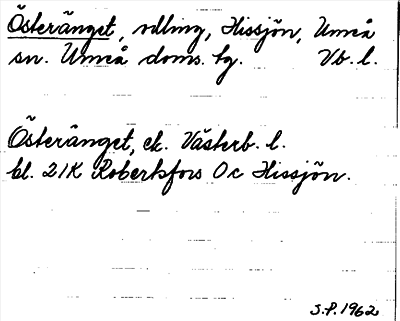 Österänget, odling, Hissjön, Umeå
sn. Umeå doms. lg. Vb. l.
Österänget, ek. Västerb. l.
bl. 21K Robertsfors 0c Hissjön.
S.P. 1962